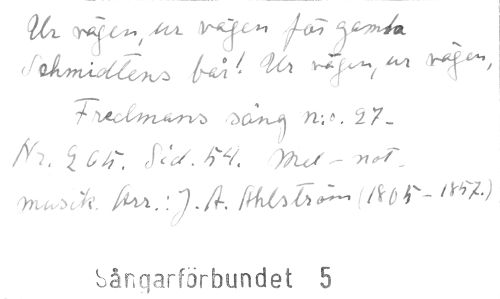 Ur vägen, ur vägen för gamla
Schmidtens bår! Ur vägen, ur vägen,
Fredmans sång n:o. 27.
Nr. 265. Sid. 54. Med not-
musik. Arr.: J. A. Ahlström (1805-1857.)
Sångarförbundet 5